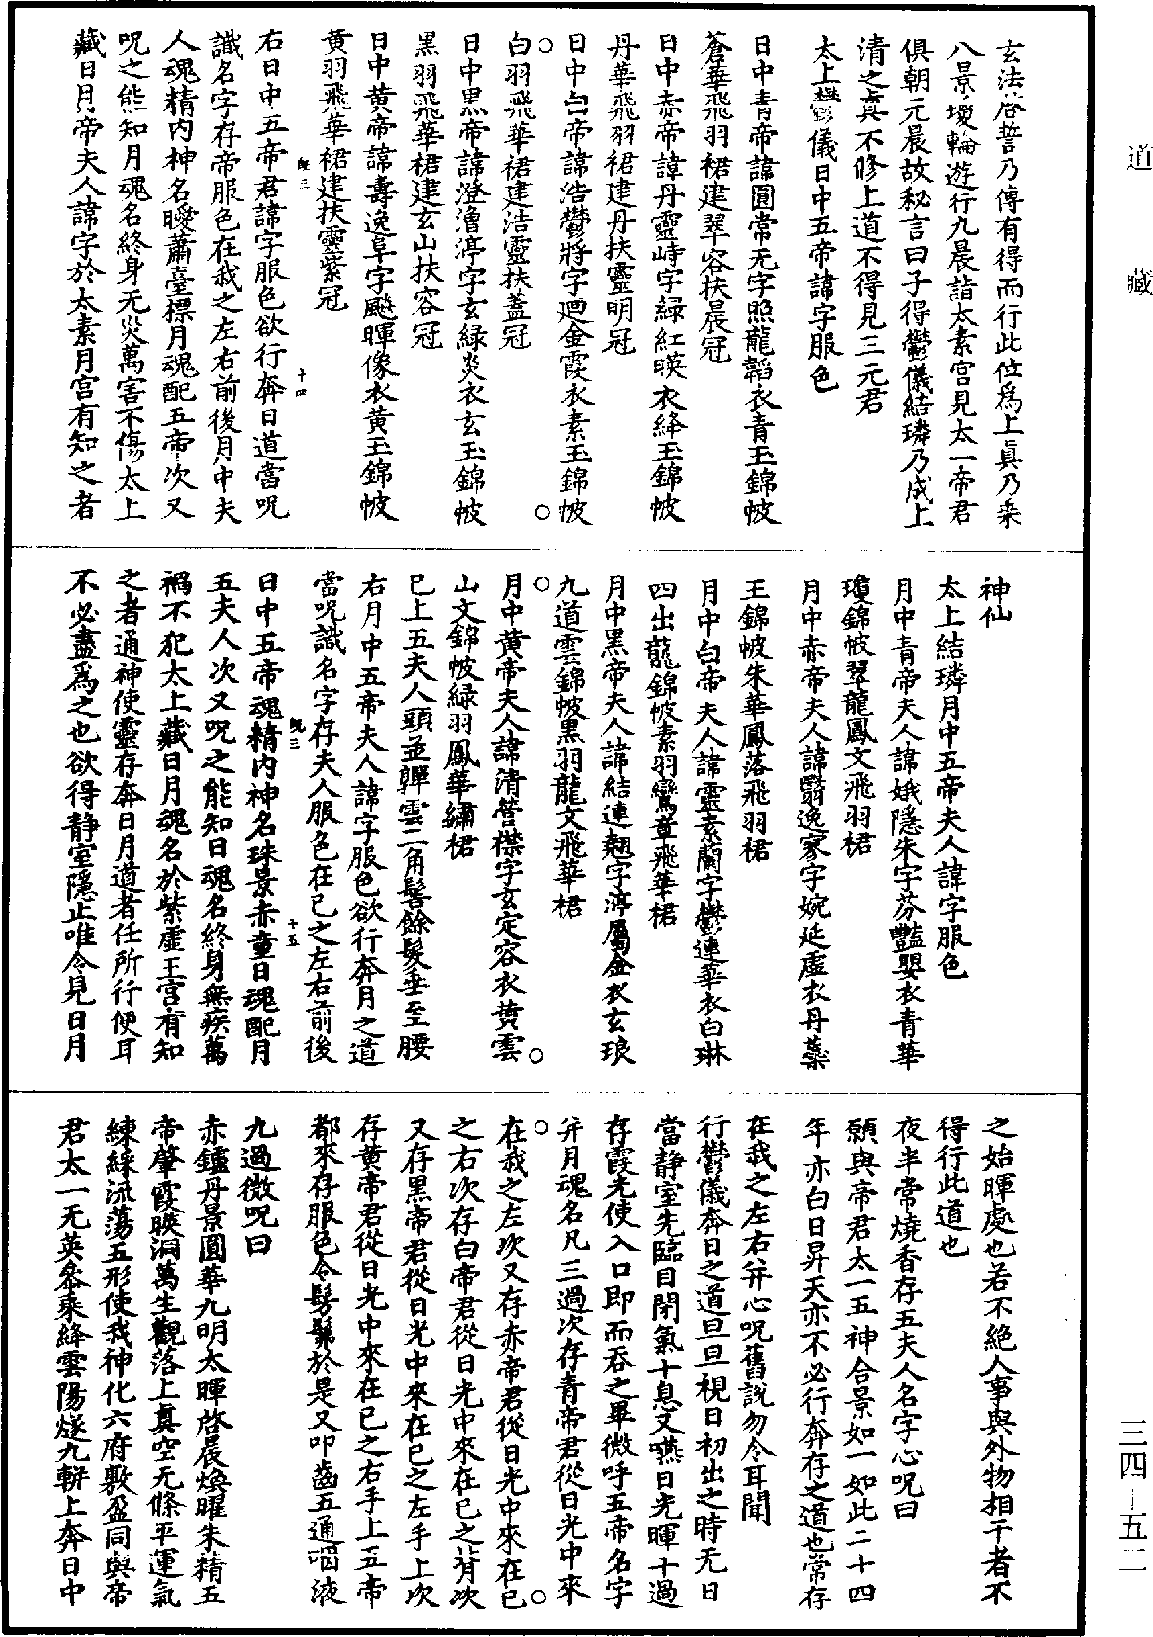 道藏
玄法啓誓乃傳有得而行此位爲上眞乃乘
八景瓊輪遊行九晨詣太素宮見太一帝君
俱朝元晨故秘言曰子得鬱儀結璘乃成上
清之眞不修上道不得見三元君
太上鬱儀日中五帝諱字服色
日中青帝諱圓常无字照龍韜衣青玉錦帔
蒼華飛羽裙建翠容扶晨冠
日中赤帝諱丹靈峙字綠虹映衣絳玉錦帔
丹華飛羽裙建丹扶靈明冠
日中白帝諱浩鬱將字迴金霞衣素玉錦帔
白羽飛華裙建浩靈扶蓋冠
日中黑帝諱澄澹渟字玄綠炎衣玄玉錦帔
黑羽飛華裙建玄山扶容冠
日中黄帝諱壽逸阜字飈暉像衣黄玉錦帔
黄羽飛華裙建扶靈紫冠
右日中五帝君諱字服色欲行奔日道當呪
識名字存帝服色在我之左右前後月中夫
人魂精内神名曖蕭臺摽月魂配五帝次又
呪之能知月魂名終身无災萬害不傷太上
藏日月帝夫人諱字於太素月宫有知之者
神仙
太上結璘月中五帝夫人諱字服色
月中青帝夫人諱娥隱朱字芬豔嬰衣青華
瓊錦帔翠龍鳳文飛羽裙
月中赤帝夫人諱翳逸寥字婉延虛衣丹蘂
玉錦帔朱華鳳落飛羽裙
月中白帝夫人諱靈素蘭字鬱連華衣白琳
四出龍錦帔素羽鸞章飛華裙
月中黑帝夫人諱結連翹字渟屬金衣玄琅
九道雲錦帔黑羽龍文飛華裙
月中黄帝夫人諱清營襟字玄定容衣黄雲
山文錦帔綠羽鳳華繡裙
已上五夫人頭並顊雲二角髻餘髮垂至腰
右月中五帝夫人諱字服色欲行奔月之道
當呪識名字存夫人服色在已之左右前後
日中五帝魂精内神名珠景赤童日魂配月
五夫人次又呪之能知日魂名終身無疾萬
禍不犯太上藏日月魂名於紫虛王宫有知
之者通神使靈存奔日月道者任所行便耳
不必盡爲之也欲得靜室隱止唯令見日月
之始暉處也若不絶人事與外物相干者不
得行此道也
夜半常燒香存五夫人名字心呪曰
願與帝君太一五神合景如一如此二十四
年亦白日昇天亦不必行奔存之道也常存
在我之左右并心呪舊説勿令耳聞
行鬱儀奔日之道旦旦視日初出之時无日
當靜室先臨目閉氣十息又嚥日光暉十過
存霞光使入口即而吞之畢微呼五帝名字
并月魂名凡三過次存青帝君從日光中來
在我之左次又存赤帝君從日光中來在已
之右次存白帝君從日光中來在已之背次
又存黑帝君從日光中來在已之左手上次
存黄帝君從日光中來在已之右手上五帝
都來存服色令髣髴於是又叩齒五通咽液
九過微呪曰
赤鑪丹景圓華九明太暉啓晨煥曜朱精五
帝肇霞映洞萬生觀落上眞空无儵平運氣
練綵流蕩五形使我神化六府敷盈同與帝
君太一无英叅乘絳雲陽燧九軿上奔日中
經三
十四
經三
十五
三四—五二